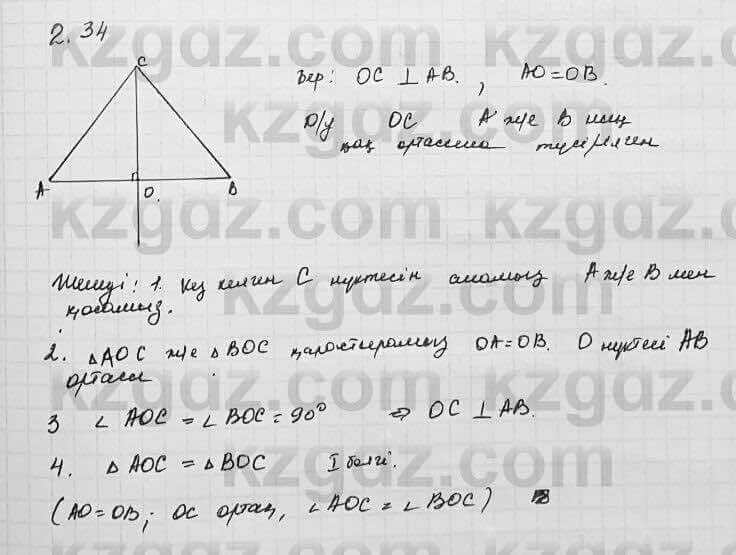 2.34
C
A
O.
B
Бер: OC ⊥ AB. , AO = OB.
Д/у OC A ж/е B ның
қақ ортасына түсірілген
Шешуі: 1. Кез келген C нүктесін аламыз A ж/е B мен
қосамыз.
2. △AOC ж/е △BOC қарастырамыз OA = OB. O нүктесі AB
ортасы
3 ∠ AOC = ∠ BOC = 90° ⇒ OC ⊥ AB.
4. △ AOC = △ BOC I белгі.
(AO = OB; OC ортақ, ∠ AOC = ∠ BOC)
kzgdz.com